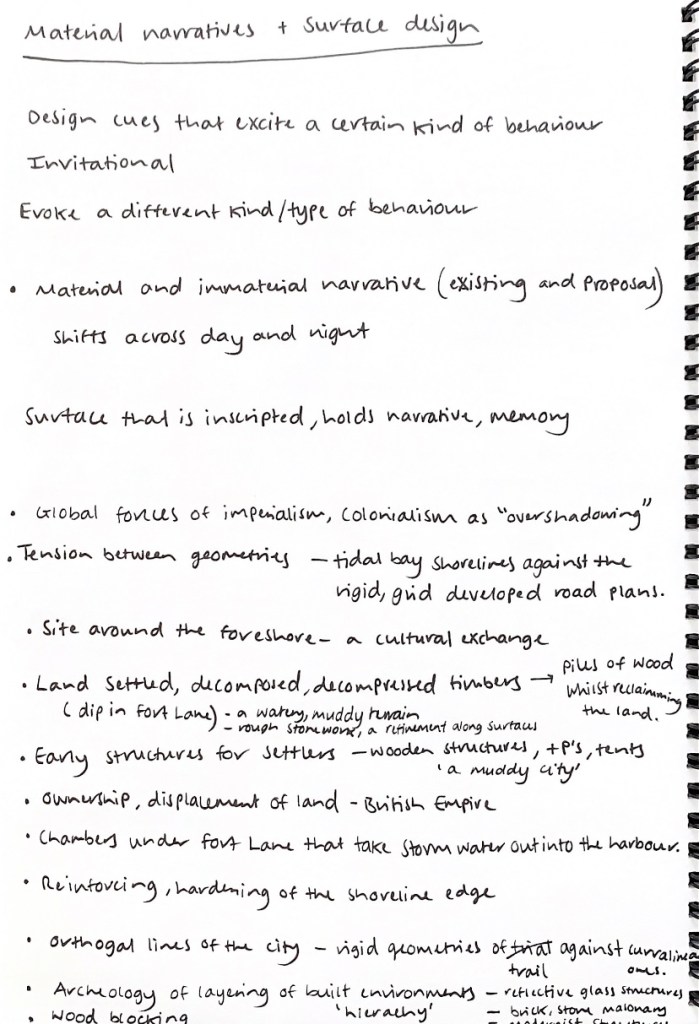 Material narratives + surface design
Design cues that excite a certain kind of behaviour
Invitational
Evoke a different kind/type of behaviour
• Material and immaterial narrative (existing and proposal)
shifts across day and night
Surface that is inscripted, holds narrative, memory
• Global forces of imperialism, colonialism as "overshadowing"
• Tension between geometries – tidal bay shorelines against the
rigid, grid developed road plans.
• Site around the foreshore – a cultural exchange
• Land settled, decomposed, decompressed timbers → piles of wood
whilst reclaimming
the land.
(dip in Fort Lane) - a watery, muddy terrain
- rough stonework, a refinement along surfaces
• Early structures for settlers – wooden structures, +P's, tents
'a muddy city'
• Ownership, displacement of land - British Empire
• Chambers under Fort Lane that take storm water out into the harbour.
• Reinforcing, hardening of the shoreline edge
• Orthogal lines of the city – rigid geometries of against
trail ones.
• Archeology of layering of built environments – reflective glass structures
'hierachy' – brick, stone
• Wood blocking